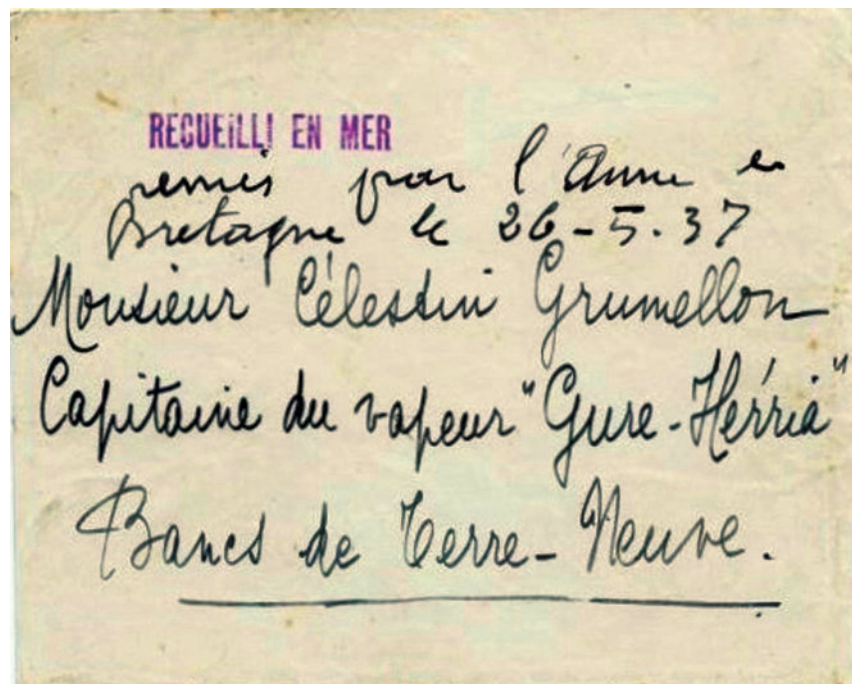 RECUEILLI EN MER
remis par l'Anne de
Bretagne le 26-5.37
Monsieur Célestin Grumellon
Capitaine du vapeur "Gure-Hérria"
Bancs de Terre-Neuve.